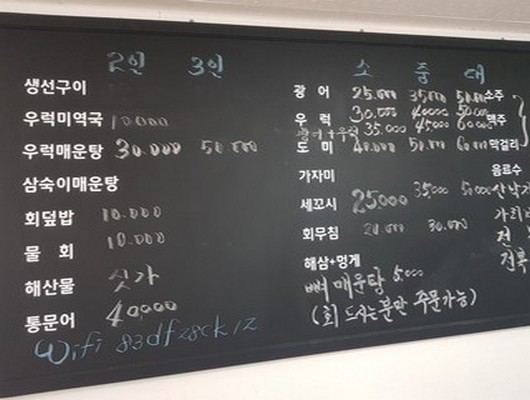 2인 3인
생선구이
우럭미역국 10.000
우럭매운탕 30.000 50.000
삼숙이매운탕
회덮밥 10.000
물 회 10.000
해산물 싯가
통문어 40000
Wifi 83df78ck12
소 중 대
광 어 25.000 35000 50.000
우 럭 30.000 40000 50.000
광어+우럭 35.000 45000 60000
도 미 40.000 50.000 60.000
가자미
세꼬시 25000 35000 50000
회무침 20.000 30.000
해삼+멍게
뼈매운탕 5.000
(회 드시는분만 주문가능)
소주
맥주
막걸리
음료수
산낙
전
전복